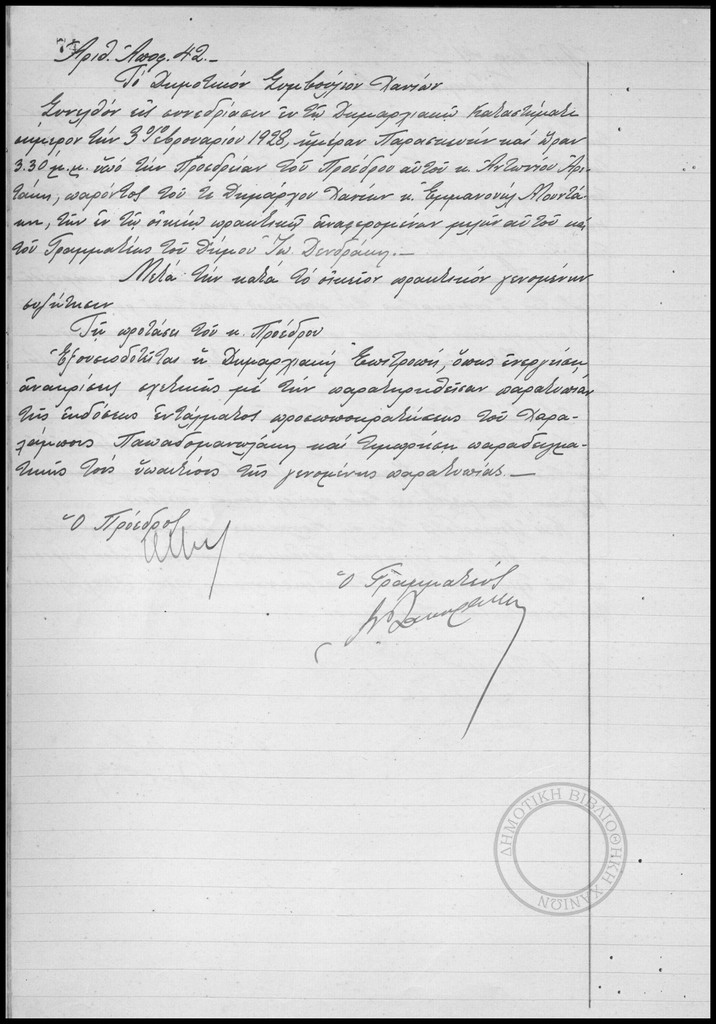 Ἀριθ. Ἀποφ. 42.-
Τό Δημοτικόν Συμβούλιον Χανίων
Συνελθόν εἰς συνεδρίασιν ἐν τῷ Δημαρχιακῷ Καταστήματι
σήμερον τήν 3 Φεβρουαρίου 1928, ἡμέραν Παρασκευήν καί ὥραν
3.30 μ.μ. ὑπό τήν Προεδρείαν τοῦ Προέδρου αὐτοῦ κ. Ἀντωνίου
παρόντος τοῦ τε Δημάρχου Χανίων κ. Ἐμμανουήλ Μουντά-
κη, τῶν ἐν τῷ οἰκείῳ πρακτικῷ ἀναφερομένων μελῶν αὐτοῦ καί
τοῦ Γραμματέως τοῦ Δήμου Ἰω. Δενδράκη.-
Μετά τήν κατά τό οἰκεῖον πρακτικόν γενομένην
συζήτησιν
Τῇ προτάσει τοῦ κ. Προέδρου
Ἐξουσιοδοτεῖται ἡ Δημαρχιακή Ἐπιτροπή, ὅπως ἐνεργήσῃ
ἀνακρίσεις σχετικῶς μέ τήν παρατηρηθεῖσαν παρατυπίαν
τῆς ἐκδόσεως ἐντάλματος προσωποκρατήσεως τοῦ Χαρα-
λάμπους καί τιμωρήσῃ παραδειγμα-
τικῶς τούς ὑπαιτίους τῆς γενομένης παρατυπίας.-
Ὁ Πρόεδρος
Ὁ Γραμματεύς
ΔΗΜΟΤΙΚΗ ΒΙΒΛΙΟΘΗΚΗ ΧΑΝΙΩΝ